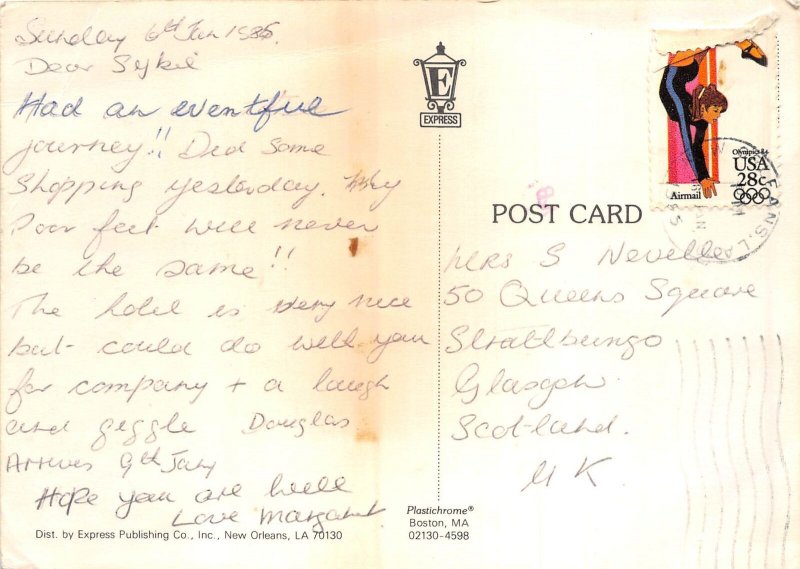 Sunday 6th Jan 1985.
Dear Sylvie
Had an eventful
journey!! Did some
shopping yesterday. My
Poor feet will never
be the same!!
The hotel is very nice
but could do with you
for company + a laugh
and giggle Douglas
Arrives 9th Jan
Hope you are well
Love Margaret
Dist. by Express Publishing Co., Inc., New Orleans, LA 70130
E
EXPRESS
Plastichrome®
Boston, MA
02130-4598
Olympics 84
USA
28c
Airmail
POST CARD
Mrs S Neville
50 Queens Square
Strathbungo
Glasgow
Scotland.
U K.